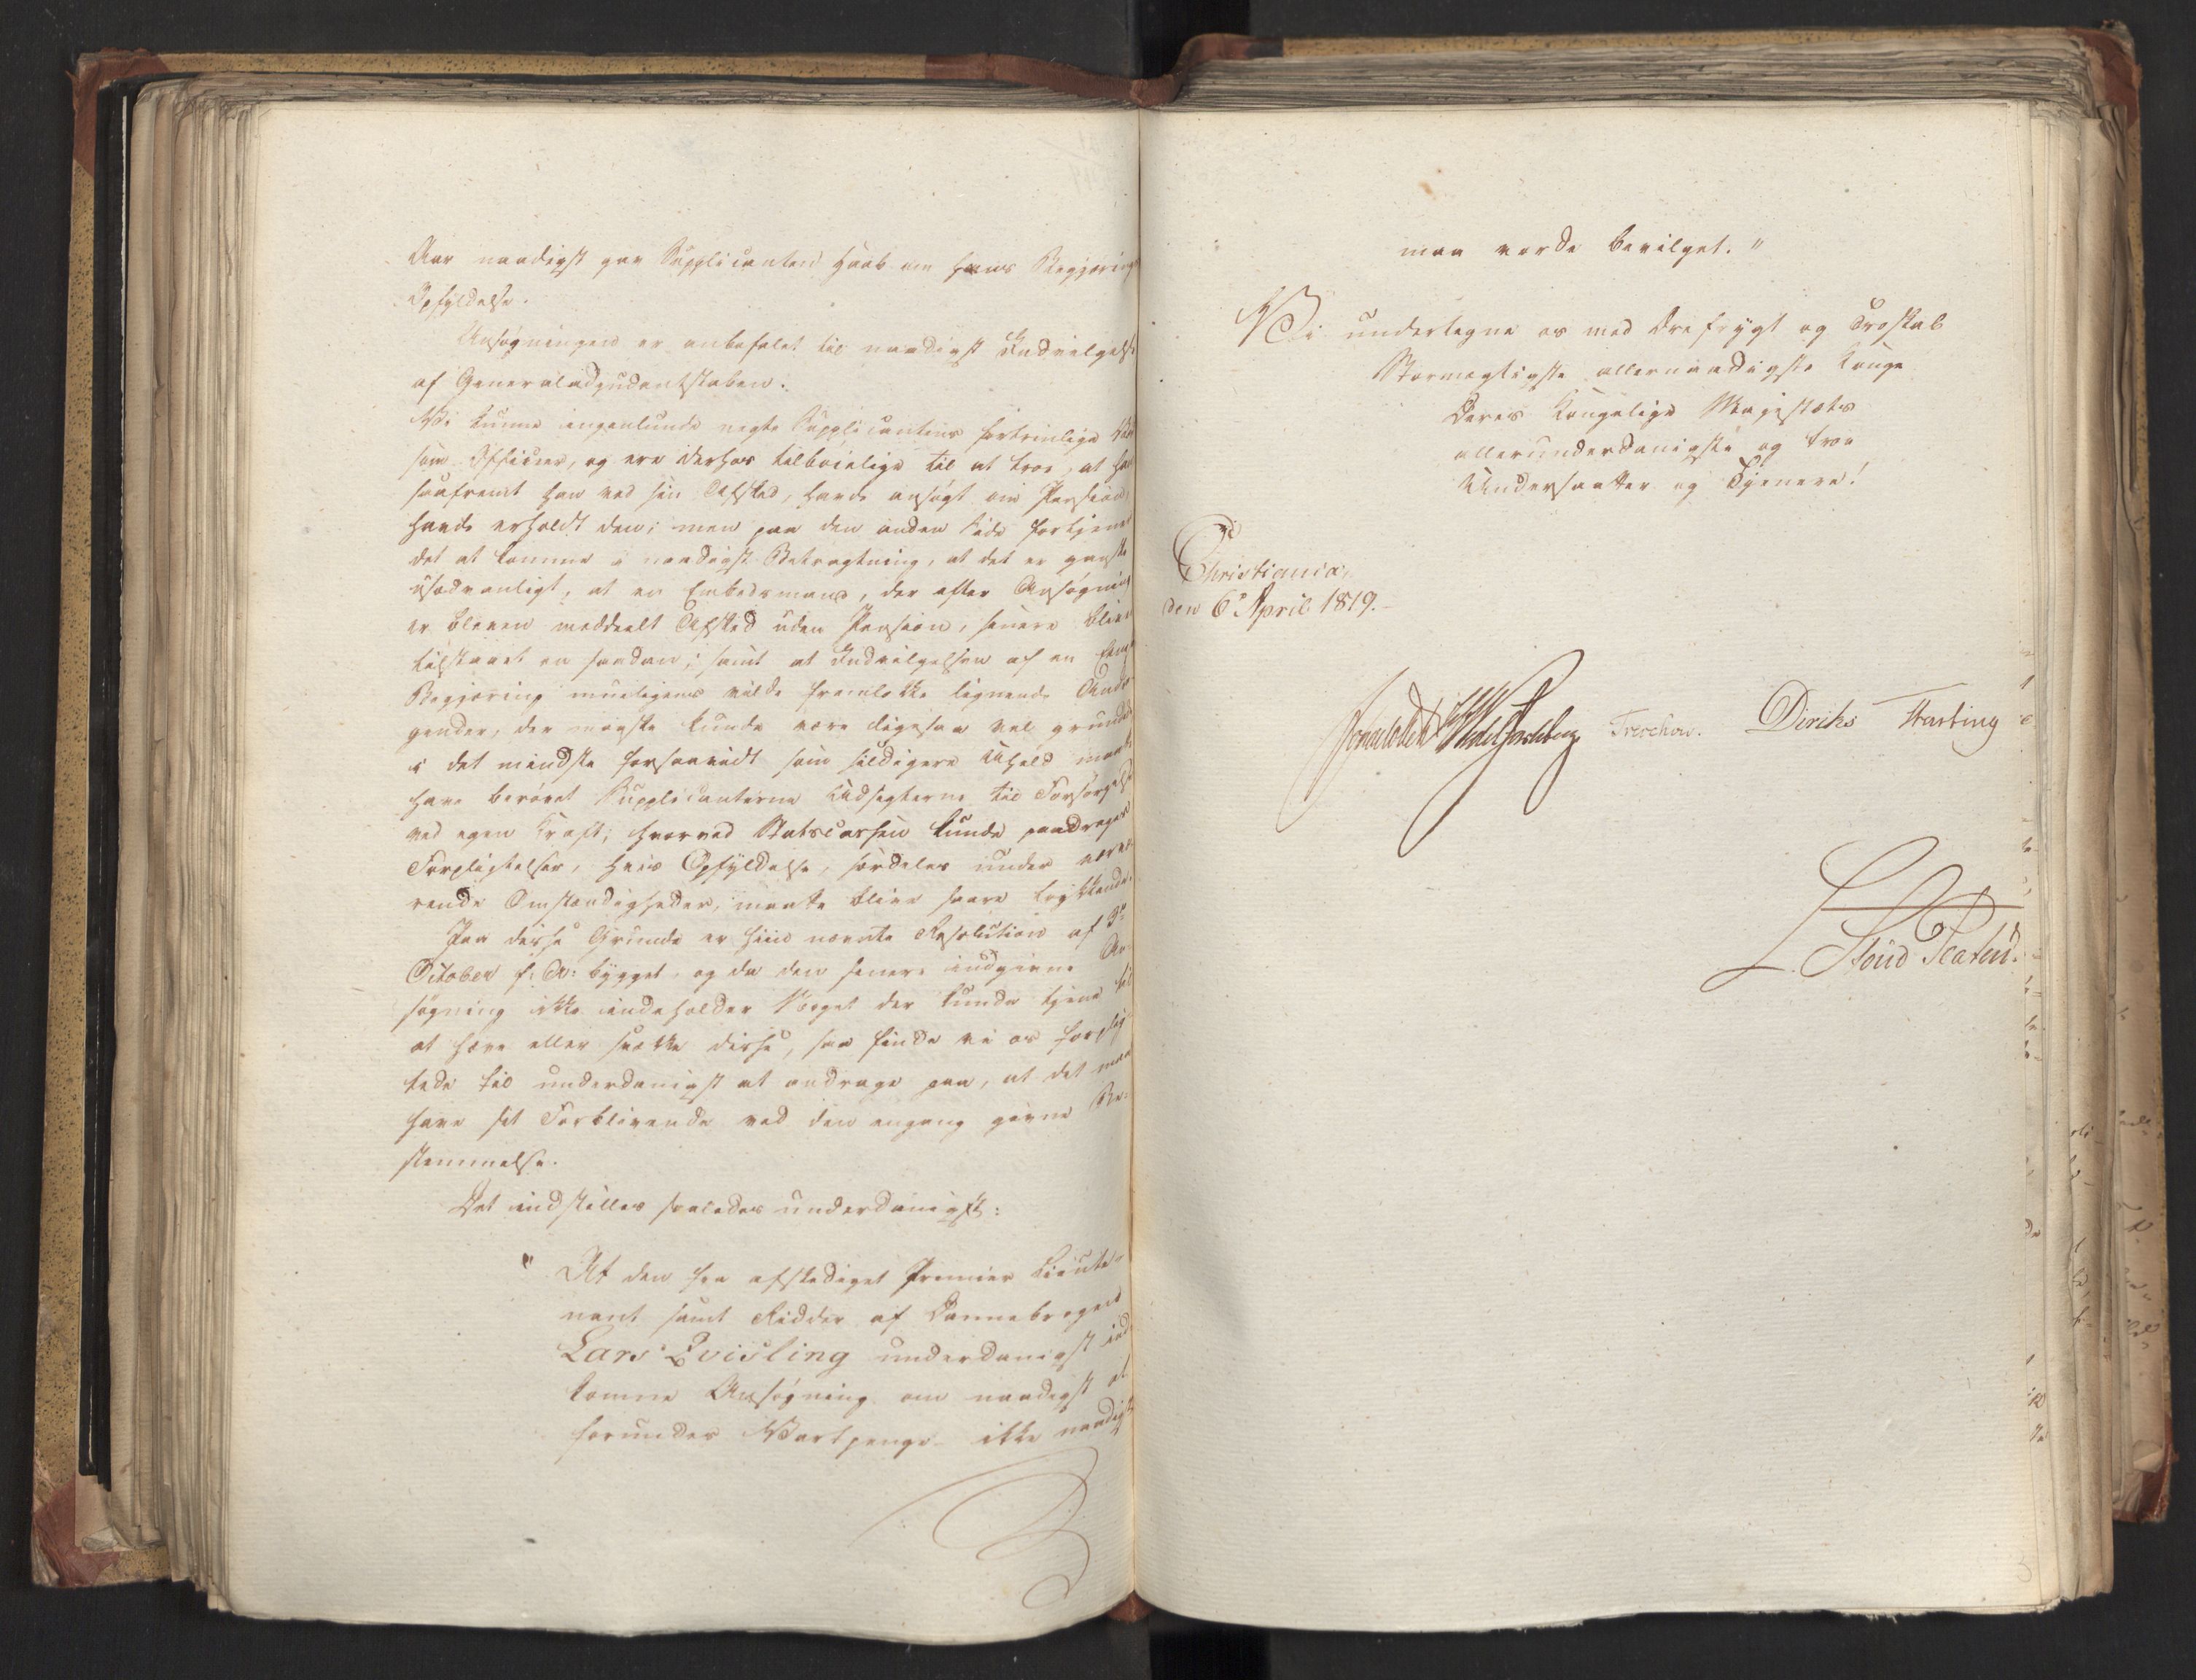 Aar naadigst gav Supplicanten Haab om hans Begjærings
Opfyldelse.
Ansøgningen er anbefalet til naadigst Indvilgelse
af Generaladjudantstaben.
Vi kunne ingenlunde negte Supplicantens fortrinlige
som Officier, og ere derhos tilbøielige til at troe, at han
saafremt han ved sin Afsked, havde ansøgt om Pension,
havde erholdt den; men paa den anden Side fortjener
det at komme i naadigst Betragtning, at det er ganske
usædvanligt, at en Embedsmand, der efter Ansøgning
er bleven meddeelt Afsked uden Pension, senere bliver
tilstaaet en saadan; samt at Indvilgelsen af en
Begjæring mueligens vilde fremlokke lignende Andra-
gender, der maaske kunde være ligesaa vel grundede
i det mindste forsaavidt som sildigere Uheld maatte
have berøvet Supplicanterne Udsigterne til Forsørgelse
ved egen Kraft; hvorved Statscassen kunde paadrages
Forpligtelser, hvis Opfyldelse, særdeles under nærvæ-
rende Omstændigheder, maatte blive saare trykkende.
Paa disse Grunde er hiin nævnte Resolution af 3die
October f: A: bygget, og da den senere indgivne An-
søgning ikke indeholder Noget der kunde tjene til
at hæve eller svække disse, saa finde vi os forplig-
tede til underdanigst at andrage paa, at det maa
have sit Forblivende ved den engang givne Be-
stemmelse.
Det indstilles saaledes underdanigst:
" At den fra afskediget Premier Lieute-
nant samt Ridder af Dannebrogen
Lars Qvisling underdanigst ind
komne Ansøgning om naadigst at
forundes Vartpenge ikke naadigst
maa vorde bevilget."
Vi undertegne os med Ærefrygt og Troskab
Stormægtigste allernaadigste Konge
Deres Kongelige Majestæts
allerunderdanigste og troe
Undersaatter og Tjenere!
Christiania,
den 6te April 1819.
Treschow. Diriks Hasting